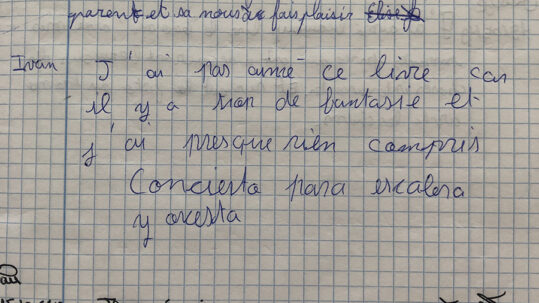 parents et sa nous fais plaisir
Ivan J'ai pas aimé ce livre car
il y a trop de fantasie et
j'ai presque rien compris
Concierto para escalera
y orcesta